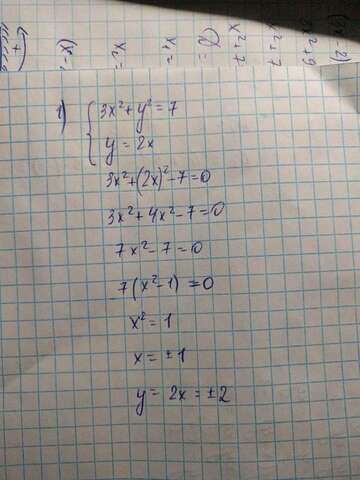 1) { 3x²+y²=7
y=2x
3x²+(2x)²-7=0
3x²+4x²-7=0
7x²-7=0
7(x²-1)=0
x²=1
x=±1
y=2x=±2